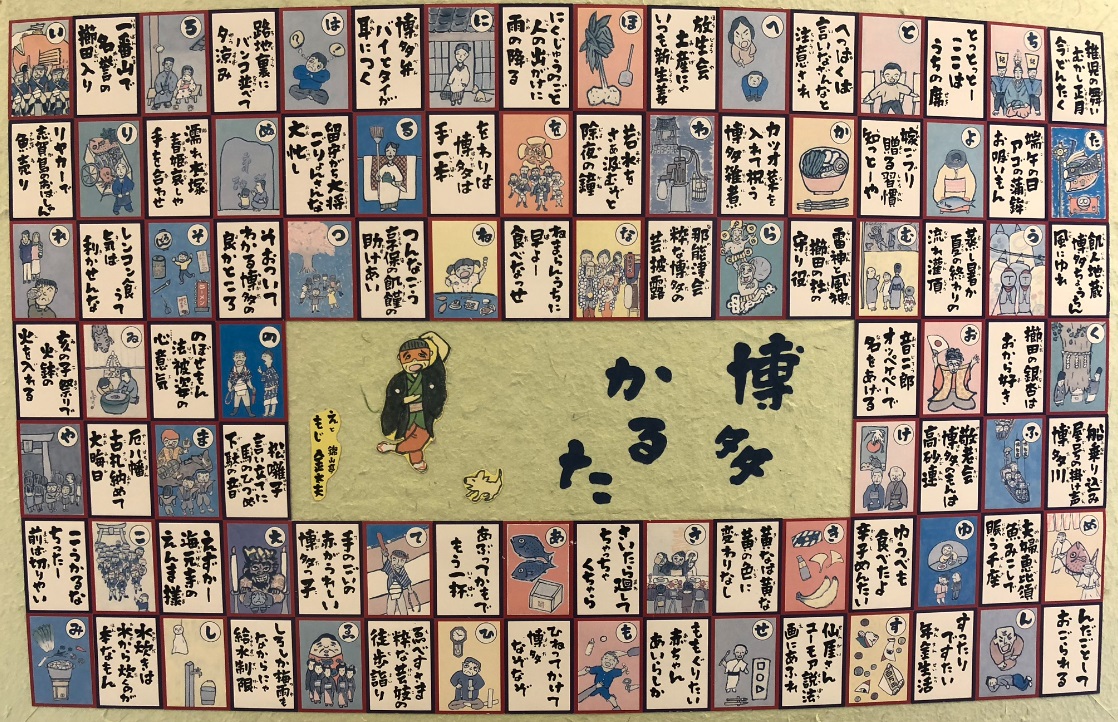 い
一番山で
名誉の
櫛田入り
ろ
路地裏に
バンコ並べて
夕涼み
は
博多弁
バイとタイが
耳につく
に
にくじゅうのごと
人の出かけに
雨の降る
ほ
放生会
土産は
いつも新生姜
へ
へっぱくは
言いなんなと
注意され
と
とっとっとー
ここは
うちの席
ち
稚児の舞い
むかし正月
今どんたく
リヤカーで
志賀島のおばしゃん
魚売り
り
濡れ衣塚
春姫哀しや
手を合わせ
ぬ
留守が大将
ごりょんさんな
大忙し
る
をわりは
博多は
手一本
を
若水を
さあ汲むぞと
除夜の鐘
わ
カツオ菜を
入れて祝う
博多雑煮
か
嫁ごブリ
贈る習慣
知っとーや
よ
端午の日
アゴの蒲鉾
お吸いもん
た
れ
レンコン食うて
気は
利かせんな
そ
そおついて
わかる博多の
良かところ
つ
つんなごう
享保の飢饉の
助けあい
ね
ねまらんうちに
早よー
食べなっせ
な
那能津会
粋な博多の
芸披露
ら
雷神と風神
櫛田の社の
守り役
む
蒸し暑か
夏の終わりの
流れ灌頂
う
飢人地蔵
博多ちょうちん
風にゆれ
亥の子祭りで
火鉢の
火を入れる
ゐ
のぼせもん
法被姿の
心意気
の
音二郎
オッペケペーで
名をあげる
お
櫛田の銀杏は
おから好き
く
博多
かるた
えと
もじ
や
厄八幡
古札納めて
大晦日
ま
松囃子
言い立てに
馬のひづめ
下駄の音
け
敬老会
博多のもんは
高砂連
ふ
船乗り込み
屋号の掛け声
博多川
こうかるな
ちったー
前は切りやい
こ
えずかー
海元寺の
えんま様
手のごいの
赤がうれしい
博多っ子
て
あぶってかもで
もう一杯
あ
さいたら廻して
ちゃちゃ
くちゃら
さ
黄なは黄な
黄の色に
変わりなし
き
ゆうべも
食べたよ
辛子めんたい
ゆ
夫婦恵比須
魚みこしで
賑う千座
め
み
水炊きは
水から炊くのが
本なもん
し
しろしか梅雨も
なからにゃ
給水制限
ゑ
ゑべすさま
粋な芸妓の
徒歩詣り
ひ
ひねってかけて
博多
なぞなぞ
も
ももぐりたい
赤ちゃん
あいらしか
せ
仙厓さん
ユーモア説法
画にあふれ
す
すったり
ですたい
年金生活
ん
んだごとして
おごられる